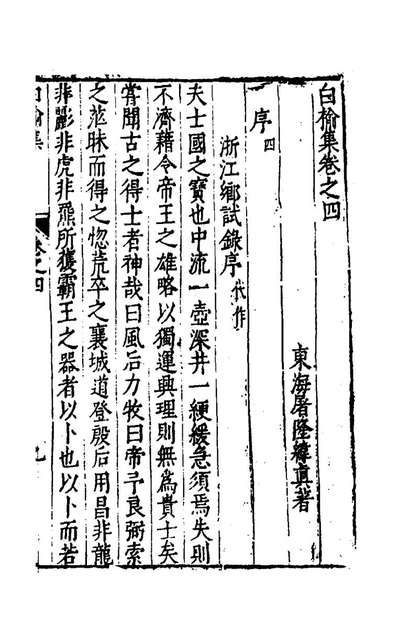 白榆集卷之四
東海屠隆緯真著
序四
浙江鄉試錄序代作
夫士國之寶也中流一壺深井一綆緩急須焉失則
不濟藉令帝王之雄略以獨運興理則無為貴士矣
嘗聞古之得士者神哉曰風后力牧曰帝予良弼索
之茫昧而得之惚荒卒之襄城道登殷后用昌非龍
非彲非虎非羆所獲霸王之器者以卜也以卜而若
白榆集
卷之四